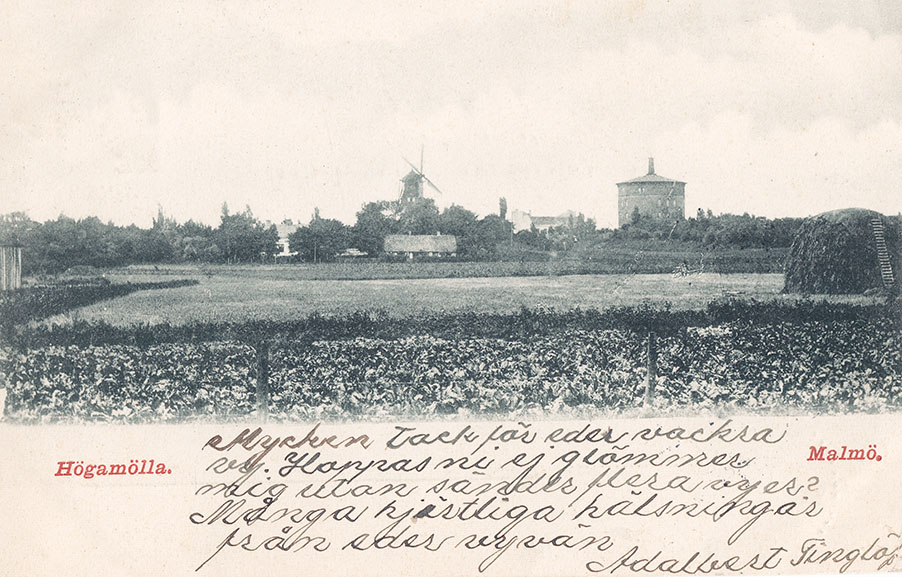 Högamölla.
Malmö.
Mycken Tack för eder vackra
vy. Hoppas ni ej glömmer
mig utan sänder flera vyer?
Många hjärtliga hälsningar
från eder vyvän
Adalbert